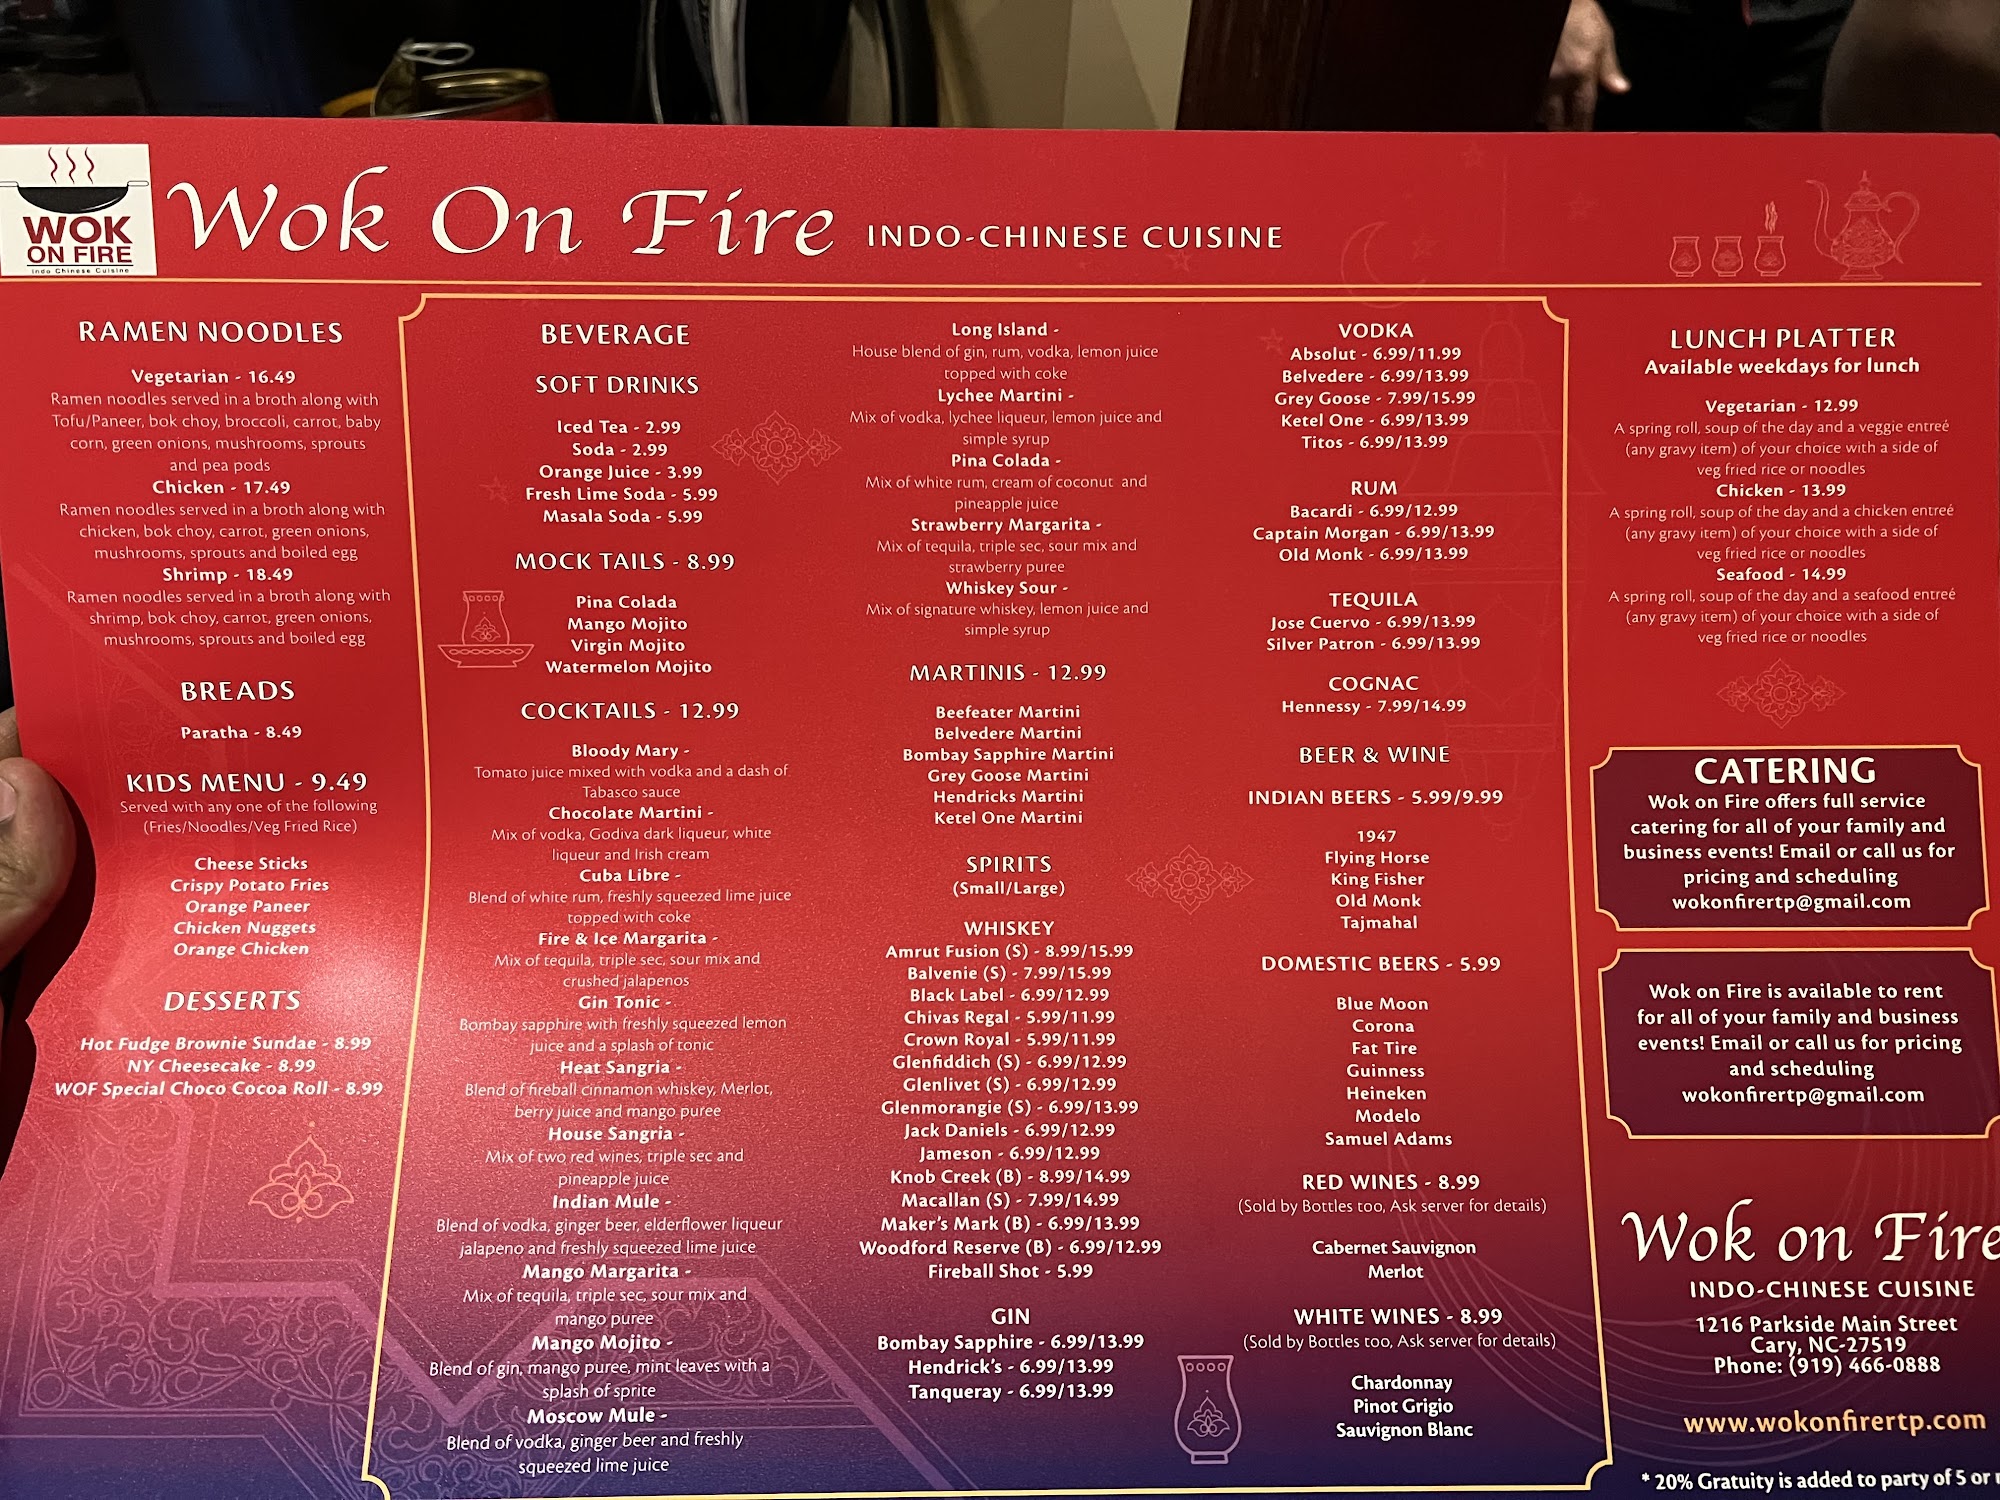 WOK
ON FIRE
Indo Chinese Cuisine
Wok On Fire INDO-CHINESE CUISINE
RAMEN NOODLES
Vegetarian - 16.49
Ramen noodles served in a broth along with
Tofu/Paneer, bok choy, broccoli, carrot, baby
corn, green onions, mushrooms, sprouts
and pea pods
Chicken - 17.49
Ramen noodles served in a broth along with
chicken, bok choy, carrot, green onions,
mushrooms, sprouts and boiled egg
Shrimp - 18.49
Ramen noodles served in a broth along with
shrimp, bok choy, carrot, green onions,
mushrooms, sprouts and boiled egg
BREADS
Paratha - 8.49
KIDS MENU - 9.49
Served with any one of the following
(Fries/Noodles/Veg Fried Rice)
Cheese Sticks
Crispy Potato Fries
Orange Paneer
Chicken Nuggets
Orange Chicken
DESSERTS
Hot Fudge Brownie Sundae - 8.99
NY Cheesecake - 8.99
WOF Special Choco Cocoa Roll - 8.99
BEVERAGE
SOFT DRINKS
Iced Tea - 2.99
Soda - 2.99
Orange Juice - 3.99
Fresh Lime Soda - 5.99
Masala Soda - 5.99
MOCK TAILS - 8.99
Pina Colada
Mango Mojito
Virgin Mojito
Watermelon Mojito
COCKTAILS - 12.99
Bloody Mary -
Tomato juice mixed with vodka and a dash of
Tabasco sauce
Chocolate Martini -
Mix of vodka, Godiva dark liqueur, white
liqueur and Irish cream
Cuba Libre -
Blend of white rum, freshly squeezed lime juice
topped with coke
Fire & Ice Margarita -
Mix of tequila, triple sec, sour mix and
crushed jalapenos
Gin Tonic -
Bombay sapphire with freshly squeezed lemon
juice and a splash of tonic
Heat Sangria -
Blend of fireball cinnamon whiskey, Merlot,
berry juice and mango puree
House Sangria -
Mix of two red wines, triple sec and
pineapple juice
Indian Mule -
Blend of vodka, ginger beer, elderflower liqueur
jalapeno and freshly squeezed lime juice
Mango Margarita -
Mix of tequila, triple sec, sour mix and
mango puree
Mango Mojito -
Blend of gin, mango puree, mint leaves with a
splash of sprite
Moscow Mule -
Blend of vodka, ginger beer and freshly
squeezed lime juice
Long Island -
House blend of gin, rum, vodka, lemon juice
topped with coke
Lychee Martini -
Mix of vodka, lychee liqueur, lemon juice and
simple syrup
Pina Colada -
Mix of white rum, cream of coconut and
pineapple juice
Strawberry Margarita -
Mix of tequila, triple sec, sour mix and
strawberry puree
Whiskey Sour -
Mix of signature whiskey, lemon juice and
simple syrup
MARTINIS - 12.99
Beefeater Martini
Belvedere Martini
Bombay Sapphire Martini
Grey Goose Martini
Hendricks Martini
Ketel One Martini
SPIRITS
(Small/Large)
WHISKEY
Amrut Fusion (S) - 8.99/15.99
Balvenie (S) - 7.99/15.99
Black Label - 6.99/12.99
Chivas Regal - 5.99/11.99
Crown Royal - 5.99/11.99
Glenfiddich (S) - 6.99/12.99
Glenlivet (S) - 6.99/12.99
Glenmorangie (S) - 6.99/13.99
Jack Daniels - 6.99/12.99
Jameson - 6.99/12.99
Knob Creek (B) - 8.99/14.99
Macallan (S) - 7.99/14.99
Maker's Mark (B) - 6.99/13.99
Woodford Reserve (B) - 6.99/12.99
Fireball Shot - 5.99
GIN
Bombay Sapphire - 6.99/13.99
Hendrick's - 6.99/13.99
Tanqueray - 6.99/13.99
VODKA
Absolut - 6.99/11.99
Belvedere - 6.99/13.99
Grey Goose - 7.99/15.99
Ketel One - 6.99/13.99
Titos - 6.99/13.99
RUM
Bacardi - 6.99/12.99
Captain Morgan - 6.99/13.99
Old Monk - 6.99/13.99
TEQUILA
Jose Cuervo - 6.99/13.99
Silver Patron - 6.99/13.99
COGNAC
Hennessy - 7.99/14.99
BEER & WINE
INDIAN BEERS - 5.99/9.99
1947
Flying Horse
King Fisher
Old Monk
Tajmahal
DOMESTIC BEERS - 5.99
Blue Moon
Corona
Fat Tire
Guinness
Heineken
Modelo
Samuel Adams
RED WINES - 8.99
(Sold by Bottles too, Ask server for details)
Cabernet Sauvignon
Merlot
WHITE WINES - 8.99
(Sold by Bottles too, Ask server for details)
Chardonnay
Pinot Grigio
Sauvignon Blanc
LUNCH PLATTER
Available weekdays for lunch
Vegetarian - 12.99
A spring roll, soup of the day and a veggie entreé
(any gravy item) of your choice with a side of
veg fried rice or noodles
Chicken - 13.99
A spring roll, soup of the day and a chicken entreé
(any gravy item) of your choice with a side of
veg fried rice or noodles
Seafood - 14.99
A spring roll, soup of the day and a seafood entreé
(any gravy item) of your choice with a side of
veg fried rice or noodles
CATERING
Wok on Fire offers full service
catering for all of your family and
business events! Email or call us for
pricing and scheduling
wokonfirertp@gmail.com
Wok on Fire is available to rent
for all of your family and business
events! Email or call us for pricing
and scheduling
wokonfirertp@gmail.com
Wok on Fire
INDO-CHINESE CUISINE
1216 Parkside Main Street
Cary, NC-27519
Phone: (919) 466-0888
www.wokonfirertp.com
* 20% Gratuity is added to party of 5 or